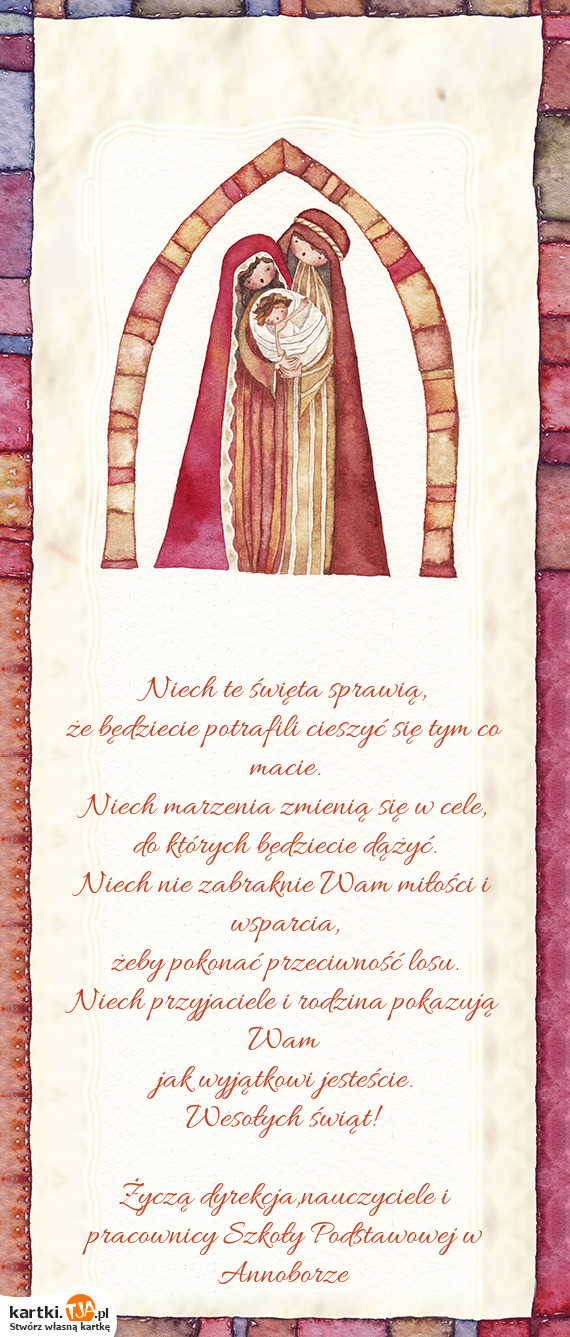 Niech te święta sprawią,
że będziecie potrafili cieszyć się tym co
macie.
Niech marzenia zmienią się w cele,
do których będziecie dążyć.
Niech nie zabraknie Wam miłości i
wsparcia,
żeby pokonać przeciwność losu.
Niech przyjaciele i rodzina pokazują
Wam
jak wyjątkowi jesteście.
Wesołych świąt!
Życzą dyrekcja,nauczyciele i
pracownicy Szkoły Podstawowej w
Annoborze
kartki.TJA.pl
Stwórz własną kartkę